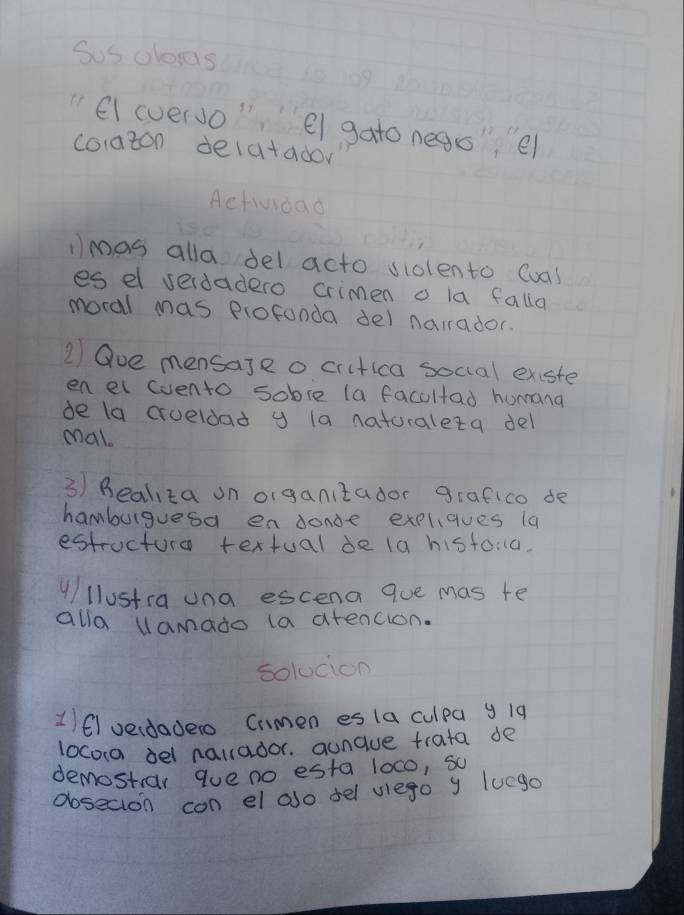 Sus obras
"El cuervo", "El gato negro", "El
corazon delatador"
Actividad
1) mas alla del acto violento Cual
es el verdadero crimen o la falla
moral mas profunda del narrador.
2) Que mensaje o critica social existe
en el cuento sobre la facultad humana
de la crueldad y la naturaleza del
mal.
3) Realiza un organizador grafico de
hamburguesa en donde expliques la
estructura textual de la historia.
4) Ilustra una escena que mas te
alla llamado la atencion.
Solucion
1) El verdadero Crimen es la culpa y la
locora del narrador. aunque trata de
demostrar que no esta loco, su
obseción con el ojo del viego y luego